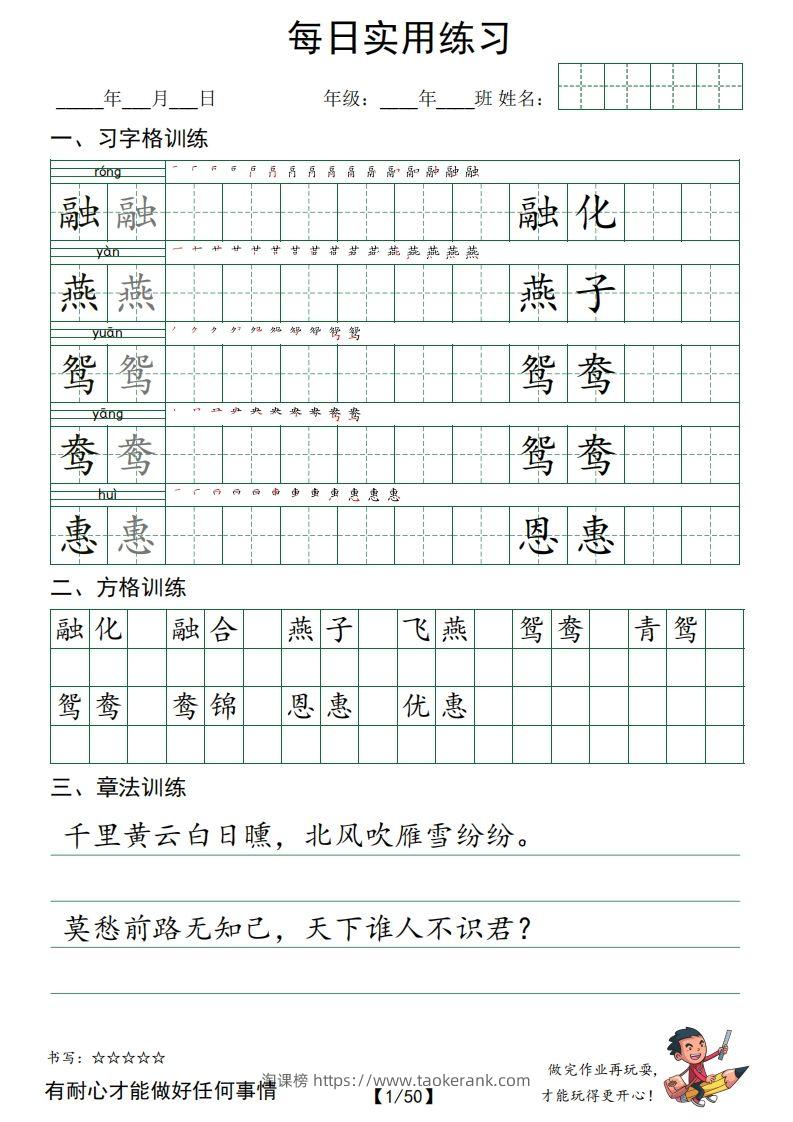 每日实用练习
_____年___月___日 年级：____年____班 姓名：
一、习字格训练
róng
融 融 融 化
yàn
燕 燕 燕 子
yuān
鸳 鸳 鸳 鸯
yāng
鸯 鸯 鸳 鸯
huì
惠 惠 恩 惠
二、方格训练
融化 融合 燕子 飞燕 鸳鸯 青鸳
鸳鸯 鸯锦 恩惠 优惠
三、章法训练
千里黄云白日曛，北风吹雁雪纷纷。
莫愁前路无知己，天下谁人不识君？
书写：☆☆☆☆☆
有耐心才能做好任何事情
淘课榜 https://www.taokerank.com
【1/50】
做完作业再玩耍，
才能玩得更开心！